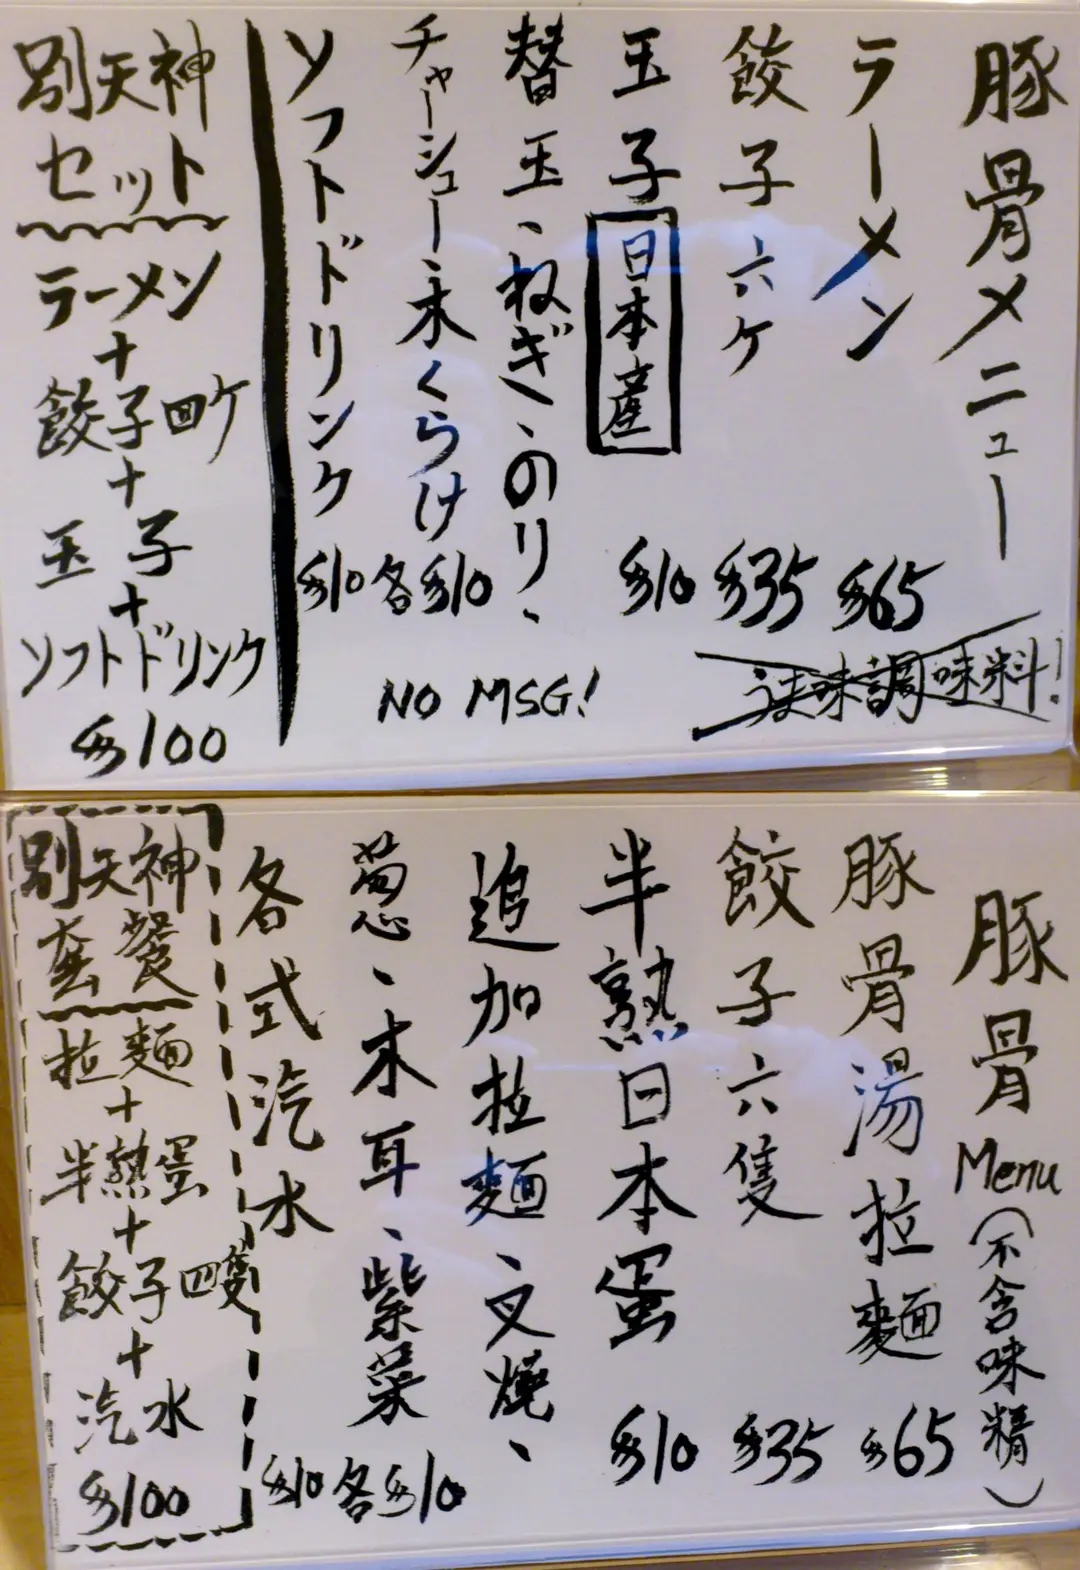 豚骨メニュー
ラーメン $65
餃子 六ケ $35
玉子 日本産 $10
替玉、ねぎ、のり、
チャーシュー、木くらげ 各$10
ソフトドリンク $10
うま味調味料!
NO MSG!
別天神
セット
ラーメン
+
餃子四ケ
+
玉子
+
ソフトドリンク
$100
豚骨Menu(不含味精)
豚骨湯拉麵 $65
餃子六隻 $35
半熟日本蛋 $10
追加拉麵、叉燒、
葱、木耳、紫菜 各$10
各式汽水 $10
別天神
套餐
拉麵
+
半熟蛋
+
餃子四隻
+
汽水
$100